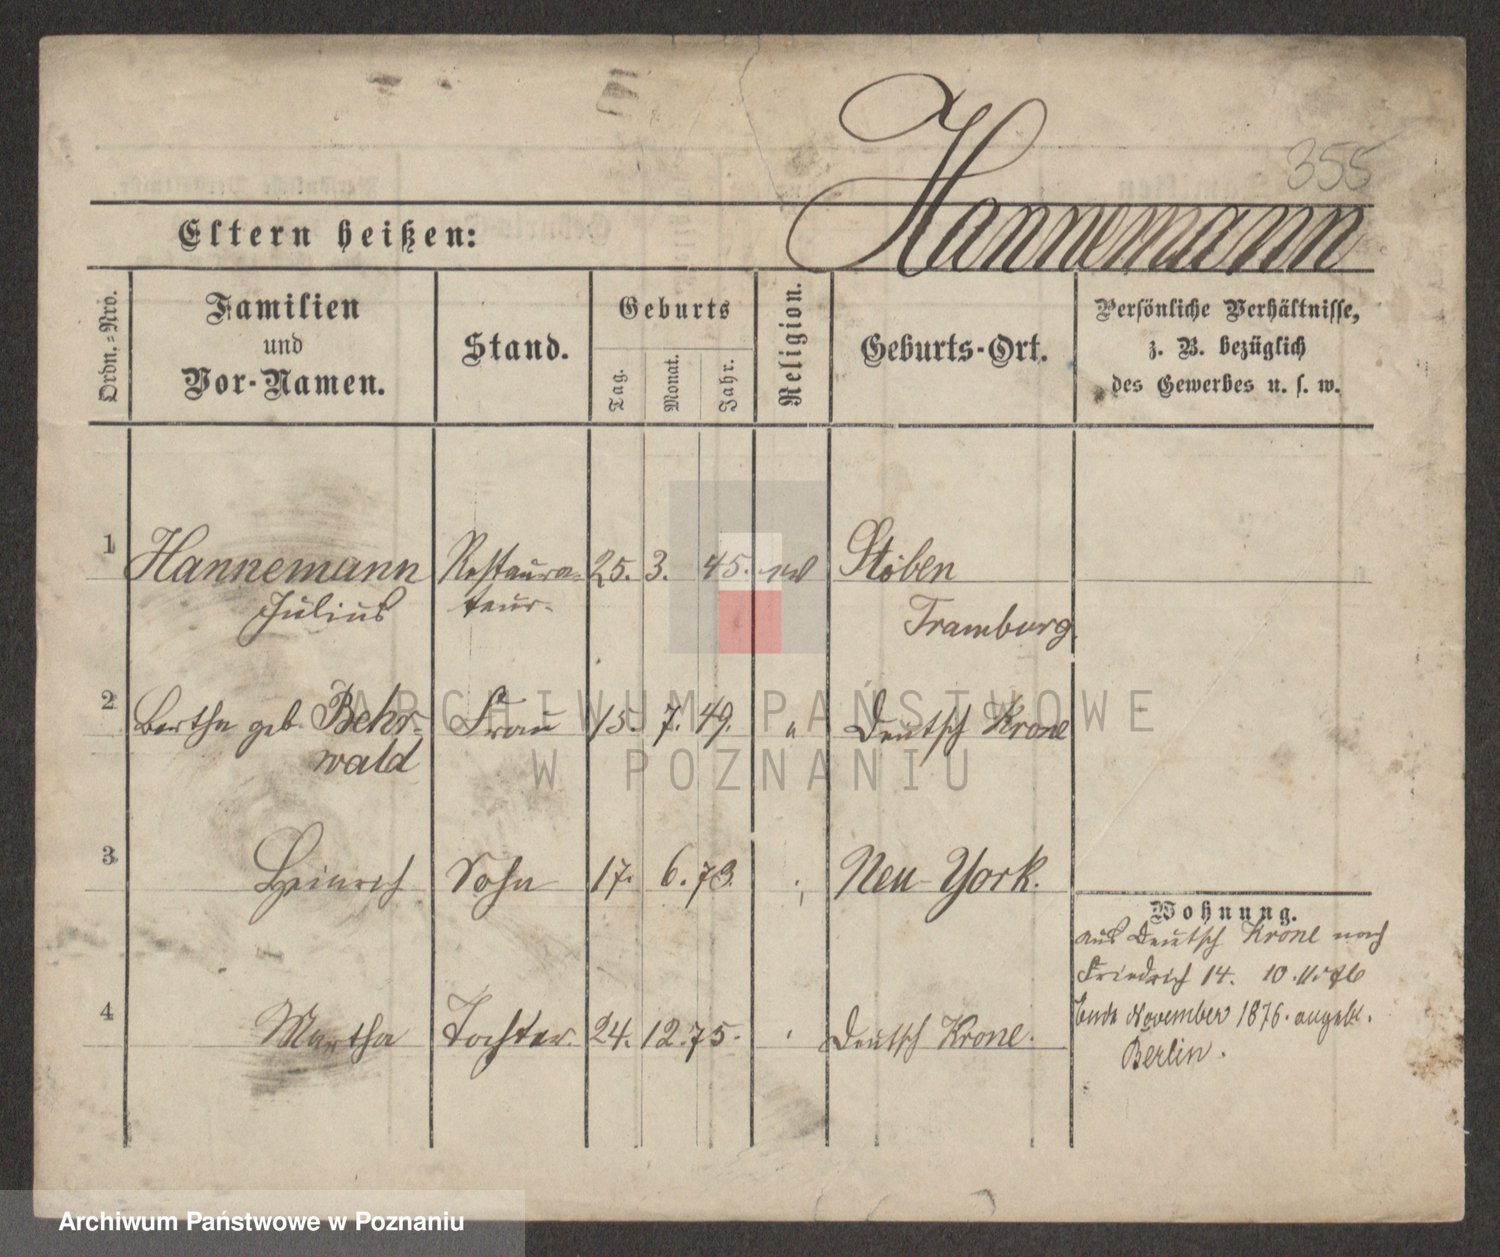 355
Hannemann
Eltern heißen:
Ordn.-Nro.
Familien
und
Vor-Namen.
Stand.
Geburts
Tag.
Monat.
Jahr.
Religion.
Geburts-Ort.
Persönliche Verhältnisse,
z. B. bezüglich
des Gewerbes u. s. w.
1 Hannemann Restaura- 25. 3. 45. Stöben
Julius teur. Tramburg
2 Bertha geb. Behr- Frau 15. 7. 49. " Deutsch Krone
wald
3 Heinrich Sohn 17. 6. 73. Neu-York.
4 Martha Tochter 24. 12. 75. Deutsch Krone.
Wohnung.
aus Deutsch Krone nach
Friedrich 14. 10.
Ende November 1876. angebl.
Berlin.
ARCHIWUM PAŃSTWOWE
W POZNANIU
Archiwum Państwowe w Poznaniu